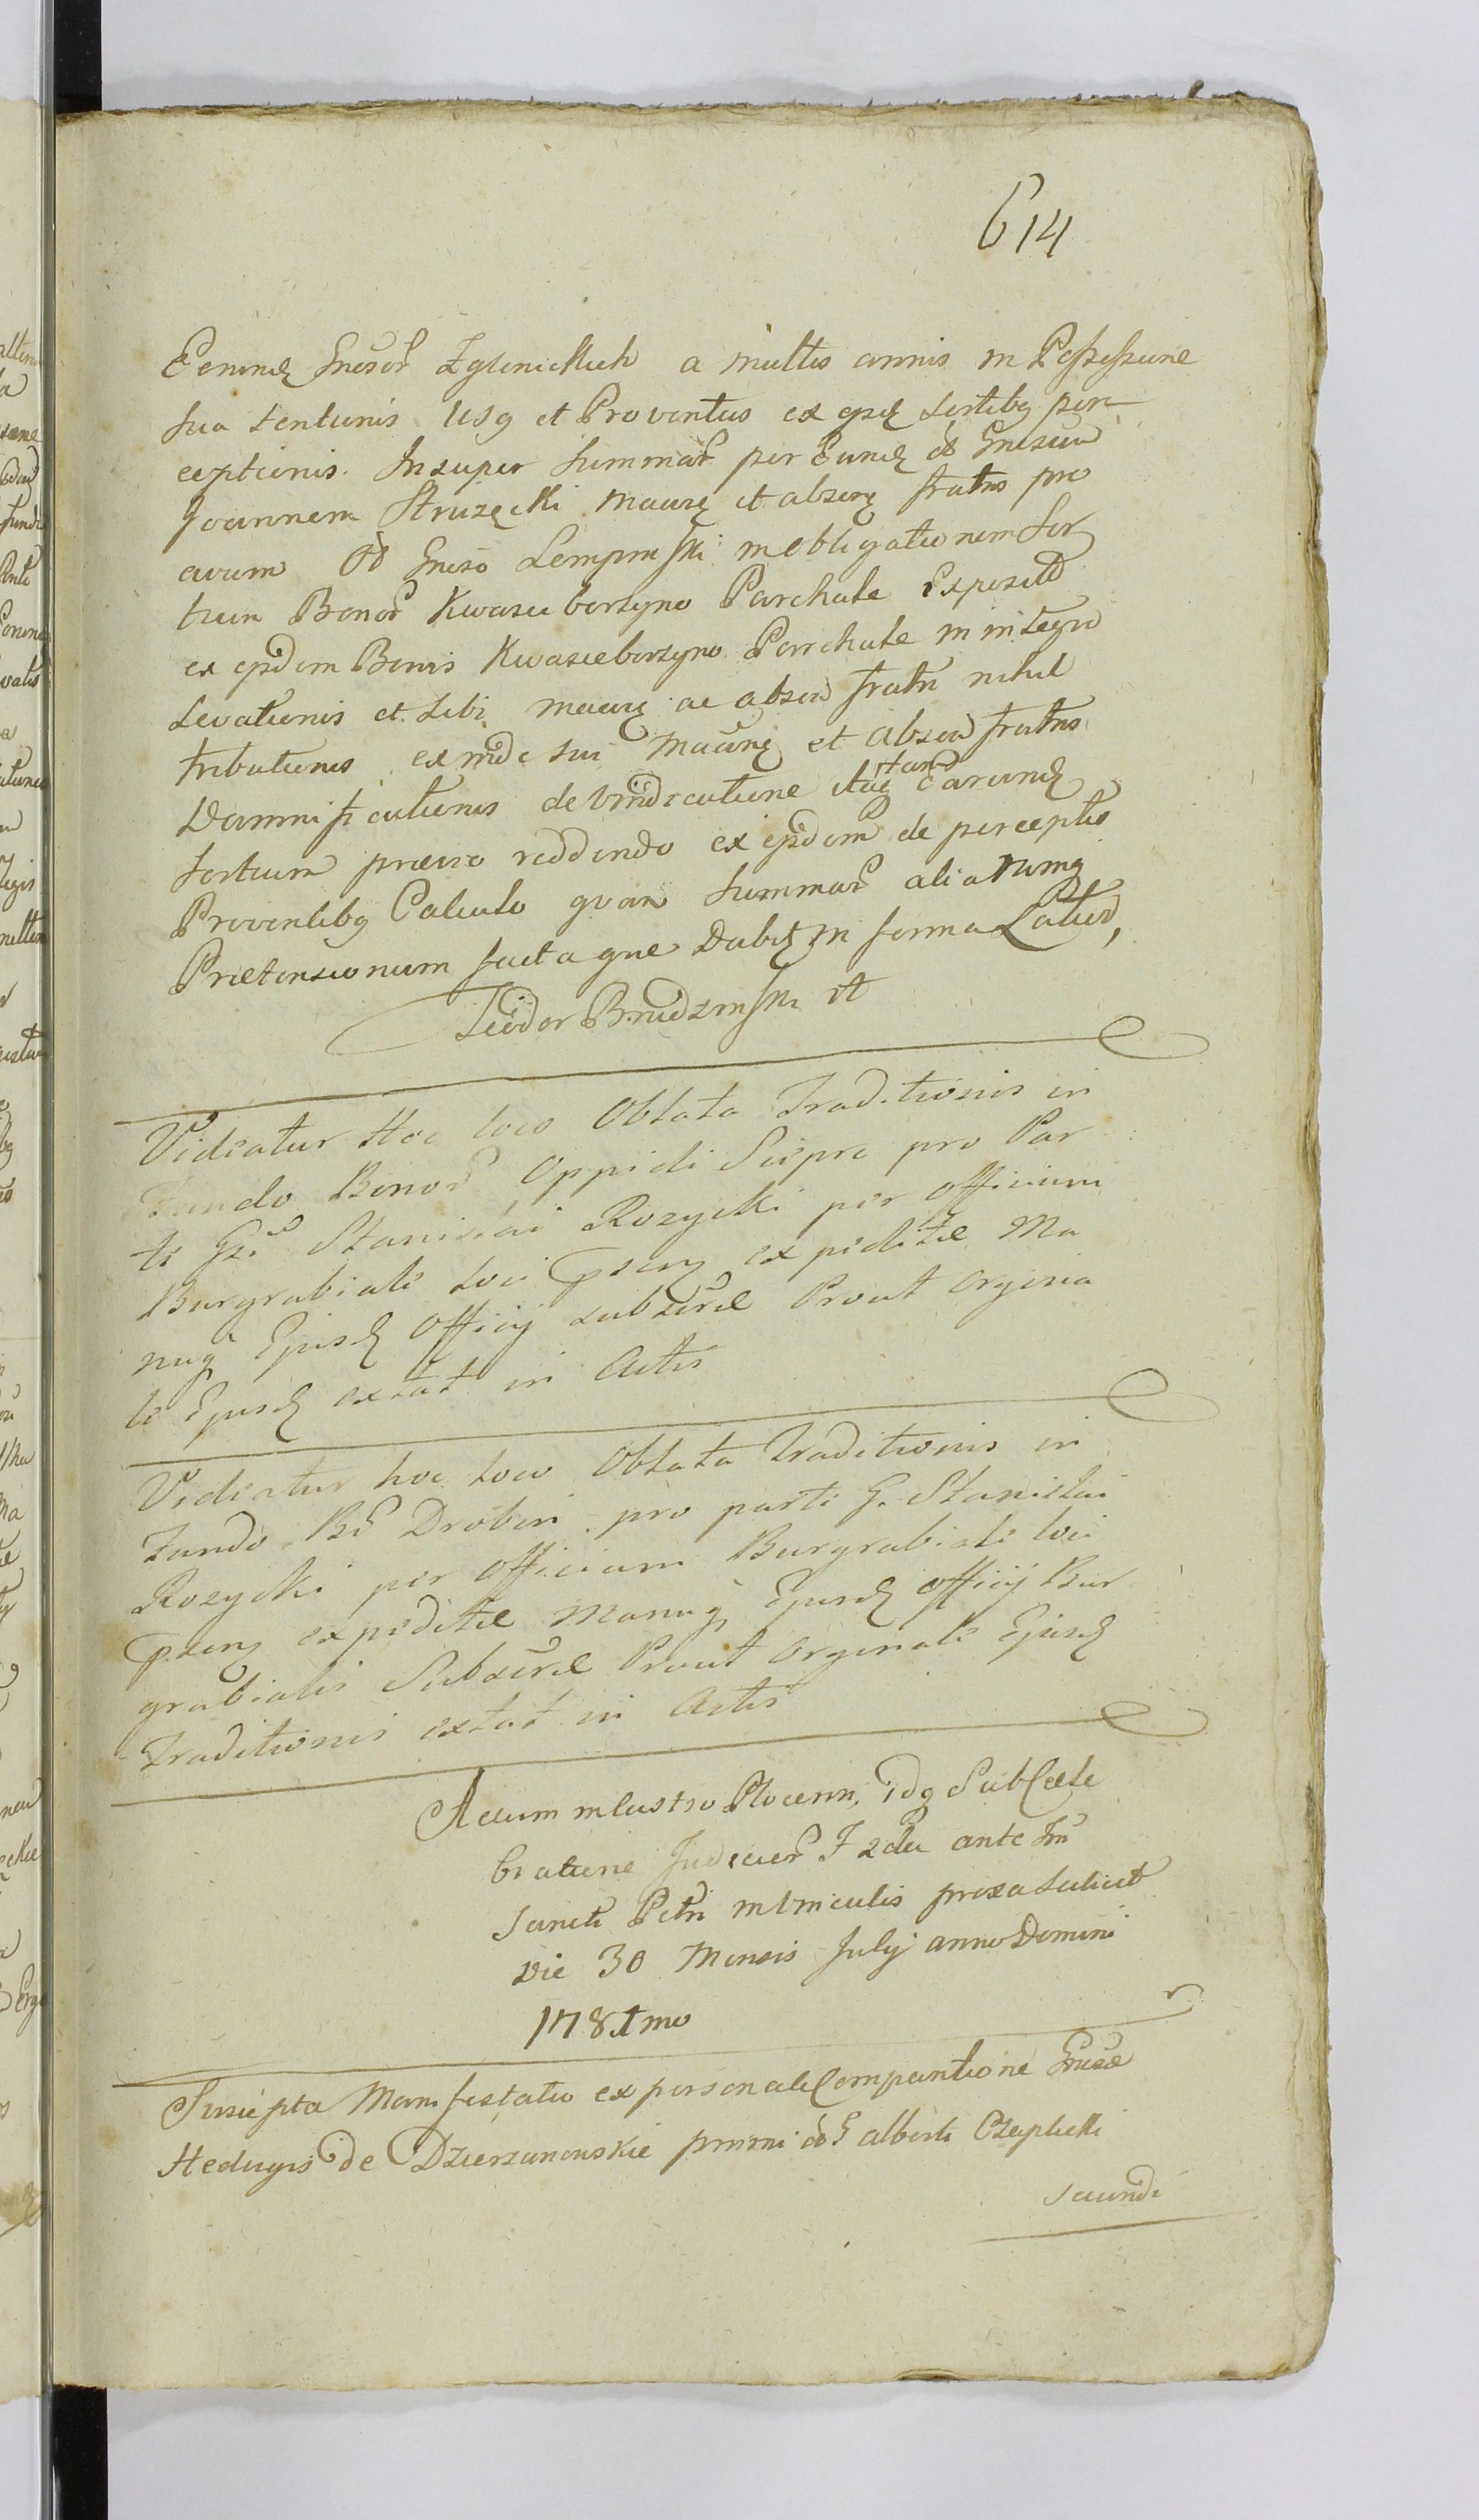 614
Eorund Gnesor Zglinickich a multis annis in Possessione
sua tentionis Usq et Proventus ex ysd sortibq per
ceptionis. Insuper summar per Eund od Gnesum
Joannem Struzęcki maurę et absorę fratris pro
avum Od Gneso Lempinski in obligationem Sor
tium Bonor Kwasieborzyno Parchate Exposit
ex ysdem Bonis Kwasieborzyno Parchate in integro
Levationis et sibi maurę ac absor fratri nihil
tributionis exinde sui maurę et absor fratris
Damnificationis de Vindicatione itaq tam Earund
sortium praevio reddendo ex ysdem de perceptis
Proventibq Calculo quam summar aliarumq
Praetensionum facta gne Dabit in forma Latiori,
Teodor Brudzinski
Videatur Hoc loco Oblata Traditionis in
Fundo Bonor Oppidi Sierpc pro Par
te Gsi Stanislai Rozycki per Officium
Burgrabiale loci psens expeditae Ma
nuq Ejusd Officij subscrae Prout Orgina
le Ejusd extat in Actis
Videatur hoc loco Oblata Traditionis in
Fundo Br Drobin pro parte G. Stanislai
Rozycki per Officium Burgrabiale loci
psens expeditae Manuq Ejusd Officij Bur
grabialis Subscrae Prout Orginale Ejusd
Traditionis extat in Actis
Actum in Castro Plocenn, idq Sub Cele
bratione Judicior F 2da ante Fm
Sancti Petri in Vinculis proxa scilicet
Die 30 Mensis July anno Domini
1781mo
Suscepta Manifestatio ex personali Comparitione Gnesae
Hedvigis de Dzierzanowskie primi od G alberti Czeplicki
secundi